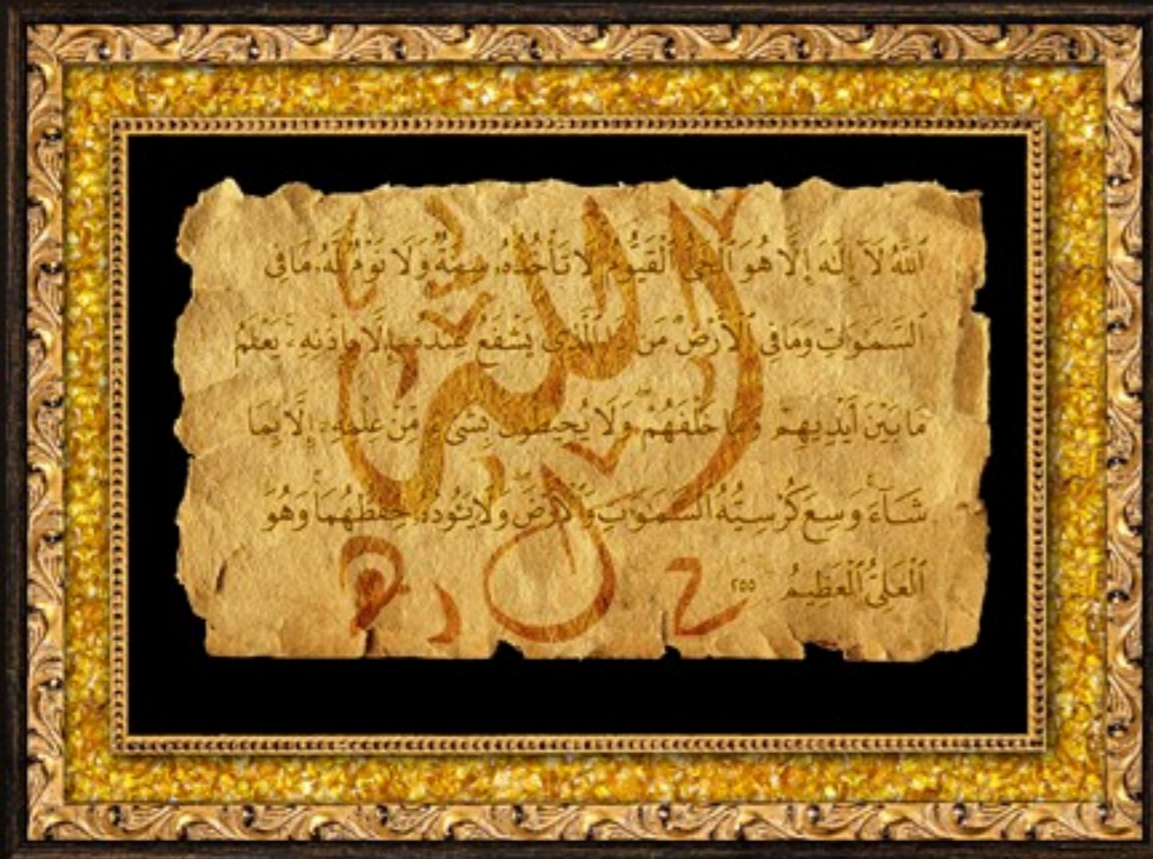 ٱللَّهُ لَآ إِلَٰهَ إِلَّا هُوَ ٱلْحَىُّ ٱلْقَيُّومُ لَا تَأْخُذُهُۥ سِنَةٌ وَلَا نَوْمٌ لَّهُۥ مَا فِى
ٱلسَّمَٰوَٰتِ وَمَا فِى ٱلْأَرْضِ مَن ذَا ٱلَّذِى يَشْفَعُ عِندَهُۥٓ إِلَّا بِإِذْنِهِۦ يَعْلَمُ
مَا بَيْنَ أَيْدِيهِمْ وَمَا خَلْفَهُمْ وَلَا يُحِيطُونَ بِشَىْءٍ مِّنْ عِلْمِهِۦٓ إِلَّا بِمَا
شَآءَ وَسِعَ كُرْسِيُّهُ ٱلسَّمَٰوَٰتِ وَٱلْأَرْضَ وَلَا يَـُٔودُهُۥ حِفْظُهُمَا وَهُوَ
ٱلْعَلِىُّ ٱلْعَظِيمُ ٢٥٥